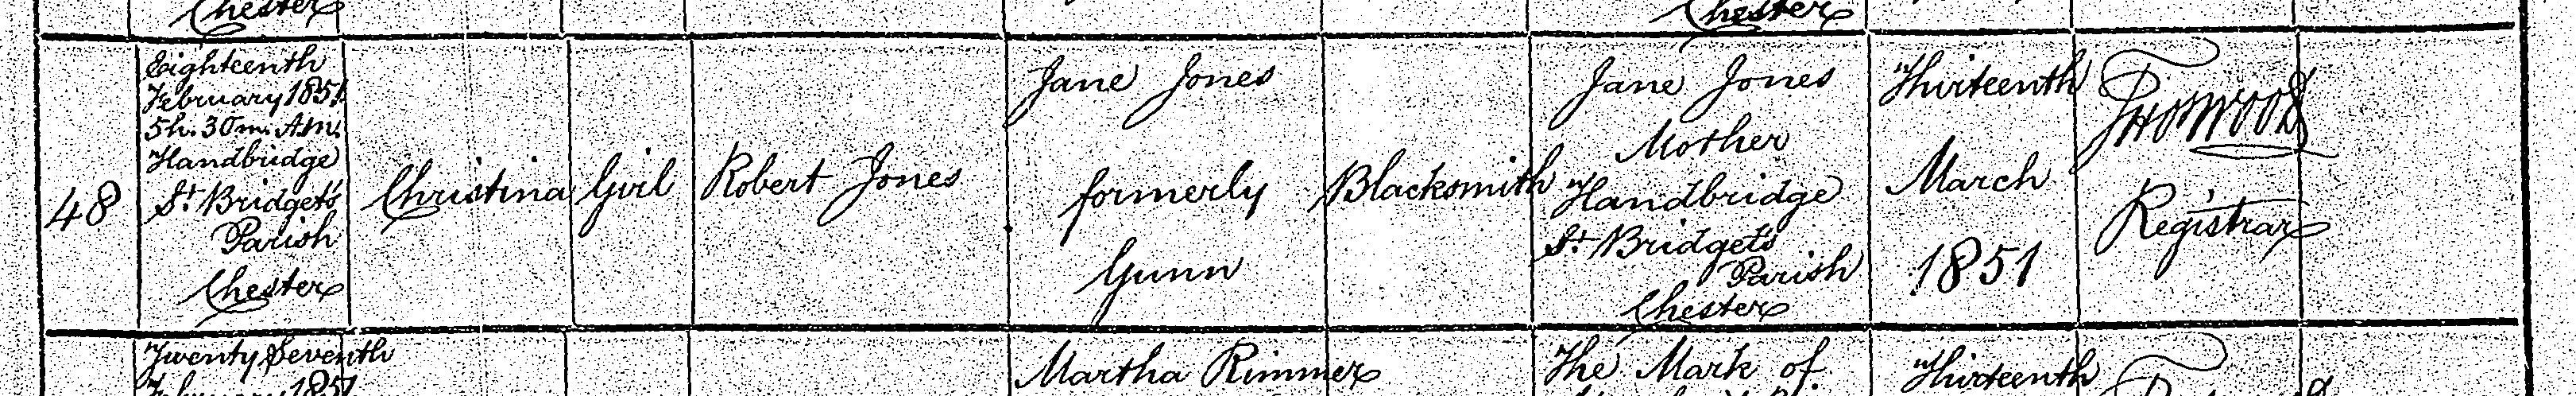 Chester
Chester
48
Eighteenth
February 1851
5h. 30m. A.M.
Handbridge
St. Bridget's
Parish
Chester
Christina
Girl
Robert Jones
Jane Jones
formerly
Gunn
Blacksmith
Jane Jones
Mother
Handbridge
St. Bridget's
Parish
Chester
Thirteenth
March
1851
Registrar
Twenty Seventh
February 1851
Martha Rimmer
The Mark of
Thirteenth